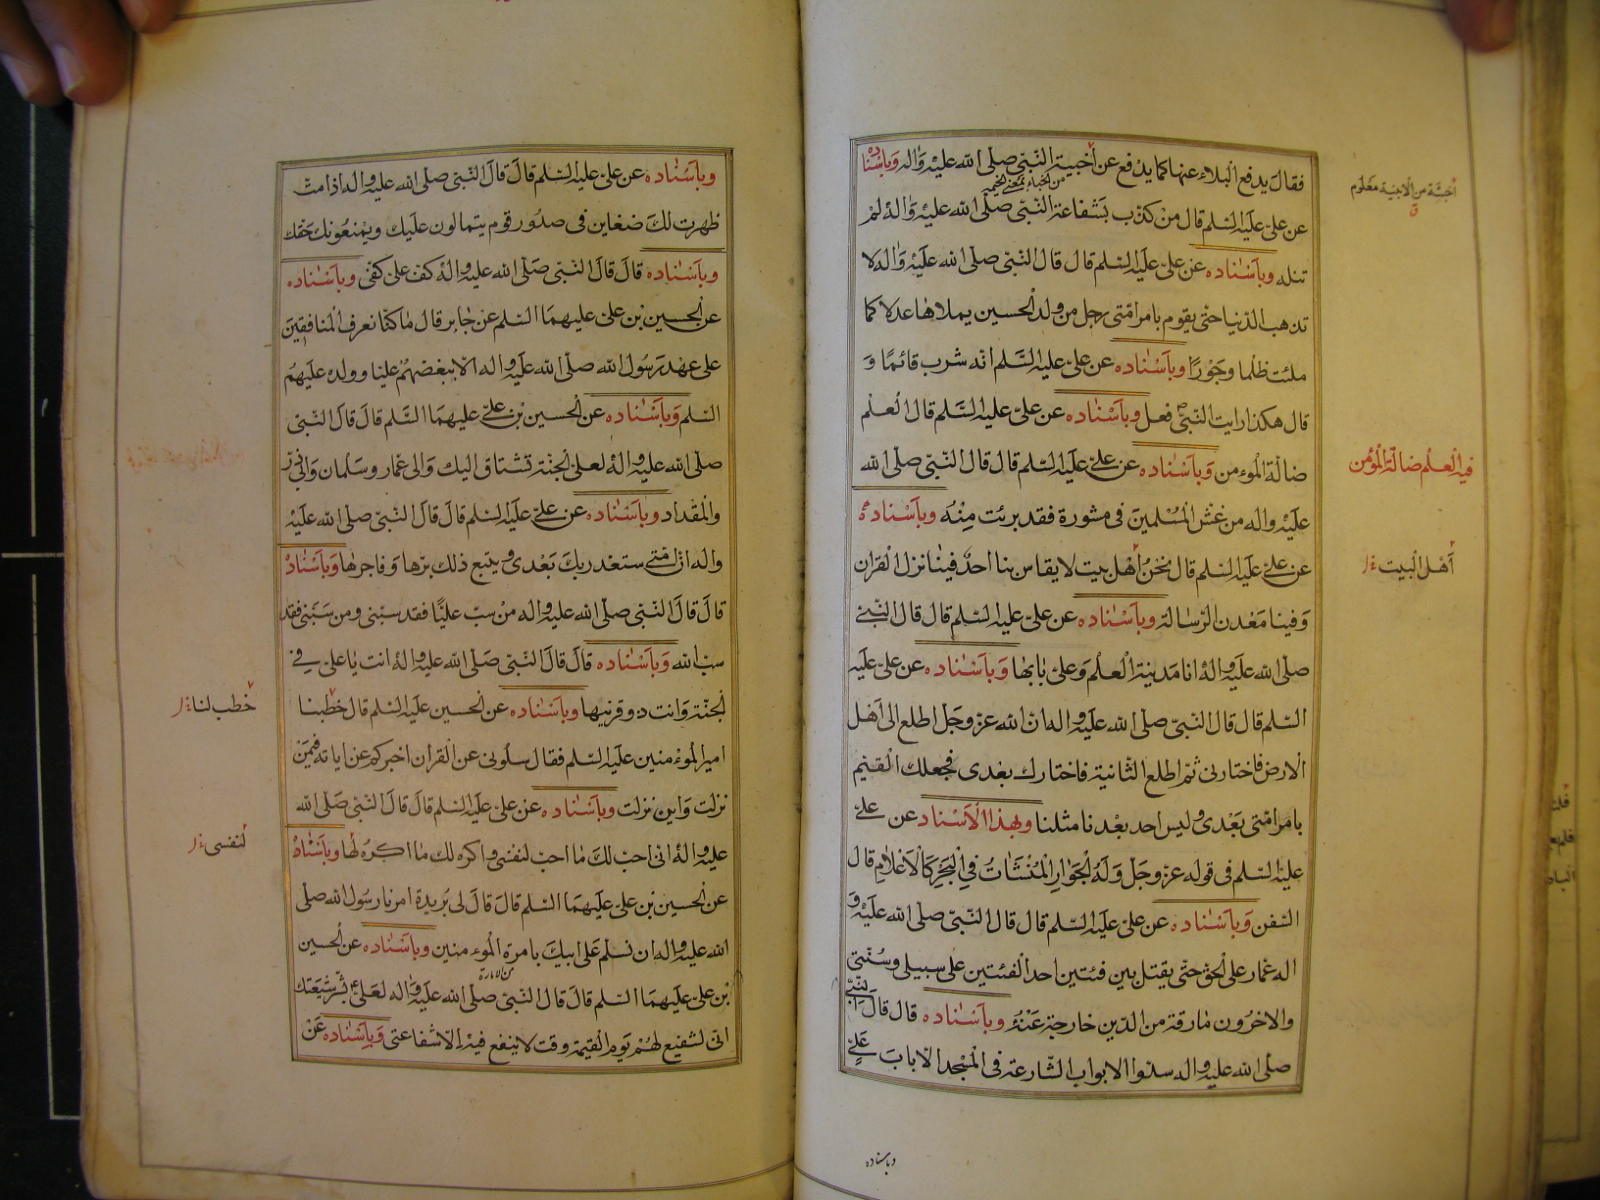 فقال يدفع البلاء عنها كما يدفع عن أخبية النبي صلى الله عليه واله وباسناده
عن علي عليه السلم قال من كذب بشفاعة النبي صلى الله عليه واله لم
تنله وباسناده عن علي عليه السلم قال قال النبي صلى الله عليه واله لا
تذهب الدنيا حتى يقوم بامر امتي رجل من ولد الحسين يملاها عدلا كما
ملئت ظلما وجورًا وباسناده عن علي عليه السلم انه شرب قائمًا و
قال هكذا رايت النبي ص فعل وباسناده عن علي عليه السلم قال العلم
ضالة المؤمن وباسناده عن علي عليه السلم قال قال النبي صلى الله
عليه واله من غش المسلمين في مشورة فقد برئت منه وباسناده
عن علي عليه السلم قال نحن أهل بيت لا يقاس بنا احد فينا نزل القران
وفينا معدن الرسالة وباسناده عن علي عليه السلم قال قال النبي
صلى الله عليه واله انا مدينة العلم وعلي بابها وباسناده عن علي عليه
السلم قال قال النبي صلى الله عليه واله ان الله عز وجل اطلع الى اهل
الارض فاختارني ثم اطلع الثانية فاختارك بعدي فجعلك القيم
بامر امتي بعدي وليس احد بعدنا مثلنا وبهذا الاسناد عن علي
عليه السلم في قوله عز وجل وله الجوار المنشات في البحر كالاعلام قال
السفن وباسناده عن علي عليه السلم قال قال النبي صلى الله عليه و
اله عمار على الحق حتى يقتل بين فئتين احد الفئتين على سبيلي وسنتي
والاخرون مارقة من الدين خارجة عنه وباسناده قال قال النبي
صلى الله عليه واله سدوا الابواب الشارعة في المسجد الا باب علي
وباسناده
اخبية من الابنية معلوم
فيه العلم ضالة المؤمن
أهل البيت
وباسناده عن علي عليه السلم قال قال النبي صلى الله عليه واله اذا مت
ظهرت لك ضغاين في صدور قوم يتمالون عليك ويمنعونك حقك
وباسناده قال قال النبي صلى الله عليه واله كف علي كفي وباسناده
عن الحسين بن علي عليهما السلم عن جابر قال ما كنا نعرف المنافقين
على عهد رسول الله صلى الله عليه واله الا ببغضهم عليا وولده عليهم
السلم وباسناده عن الحسين بن علي عليهما السلم قال قال النبي
صلى الله عليه واله لعلي الجنة تشتاق اليك والى عمار وسلمان وابي ذر
والمقداد وباسناده عن علي عليه السلم قال قال النبي صلى الله عليه
واله ان امتي ستغدر بك بعدي ويتبع ذلك برها وفاجرها وباسناده
قال قال النبي صلى الله عليه واله من سب عليًا فقد سبني ومن سبني فقد
سب الله وباسناده قال قال النبي صلى الله عليه واله انت يا علي في
الجنة وانت ذو قرنيها وباسناده عن الحسين عليه السلم قال خطبنا
امير المؤمنين عليه السلم فقال سلوني عن القران اخبركم عن اياته فيمن
نزلت واين نزلت وباسناده عن علي عليه السلم قال قال النبي صلى الله
عليه واله اني احب لك ما احب لنفسي واكره لك ما اكره لها وباسناده
عن الحسين بن علي عليهما السلم قال قال لي بريدة امرنا رسول الله صلى
الله عليه واله ان نسلم على ابيك بامرة المؤمنين وباسناده عن الحسين
بن علي عليهما السلم قال قال النبي صلى الله عليه واله لعلي بشر شيعتك
اني لشفيع لهم يوم القيمة وقت لا ينفع فيه الا شفاعتي وباسناده عن
من الامارة
خطب لنا
لنفسي